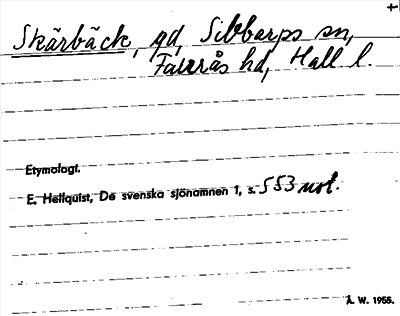 +
Skärbäck, gd, Sibbarps sn,
Faurås hd, Hall l.
Etymologi.
E. Hellquist, De svenska sjönamnen 1, s. 553 not.
Å. W. 1955.